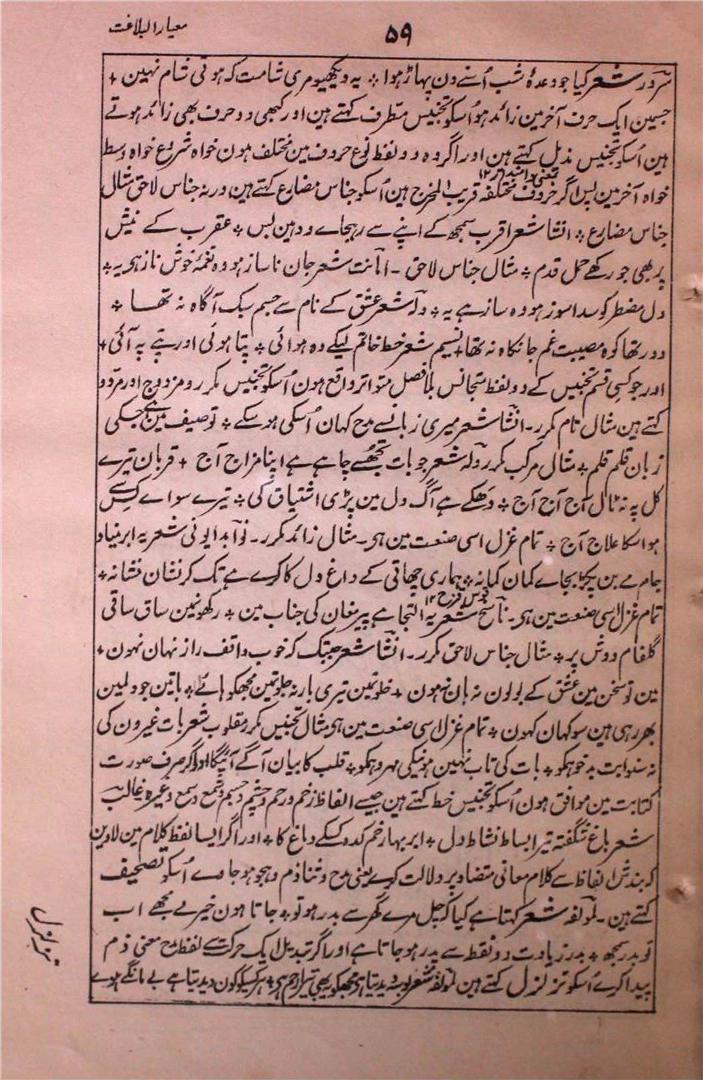 معیار البلاغت
۵۹
سرور شعر کیا جو وعدۂ شب اُسنے دن پہاڑ ہوا ٭ یہ دیکھیو مری شامت کہ ہوتی شام نہین ٭
جسمین ایک حرف آخرمین زائد ہو اُسکو تجنیس مطرف کہتے ہین اور کبھی دو حرف بھی زائد ہوتے
ہین اُسکو تجنیس مذیل کہتے ہین اور اگر وہ دو لفظ نوع حروف مین مختلف ہون خواہ شروع خواہ وسط
خواہ آخر مین پس اگر حروف مختلفہ قریب المخرج ہین اُسکو جناس مضارع کہتے ہین ورنہ جناس لاحق مثال
جناس مضارع ٭ انشا شعر اقرب سمجھ کے اپنے سے رہجاے دہین بس ٭ عقرب کے نیش
پر بھی جو رکھے حمل قدم ٭ مثال جناس لاحق ۔ امانت شعر جان ناساز ہو وہ نغمۂ خوش ناز ہی یہ ٭
دل مضطر کو سدا سوز ہو وہ ساز ہے یہ ٭ ولہ شعر عشق کے نام سے جسم سبک آگاہ نہ تھا ٭
دور تھا کوہ مصیبت غم جانکاہ نہ تھا ٭ نسیم شعر خط خاتم لیکے وہ ہوائی ٭ پتا ہوئی اور پتے پہ آئی ٭
اور جو کسی قسم تجنیس کے دو لفظ متجانس بلافصل متواتر واقع ہون اُسکو تجنیس مکرر و مزدوج اور مردد
کہتے ہین مثال تام مکرر ۔ انشا شعر میری زبانسے مدح کہان اُسکی ہو سکے ٭ توصیف مین ہے جسکی
زبان قلم قلم ٭ مثال مرکب مکرر ولہ شعر جو بات تجھسے چاہے ہے اپنا مزاج آج ٭ قربان تیرے
کل پہ نہ ٹال آج آج آج ٭ دہکے ہے آگ دل مین پڑی اشتیاق کی ٭ تیرے سواے کس سے
ہو اسکا علاج آج ٭ تمام غزل اسی صنعت مین ہی ۔ مثال زائد مکرر ۔ نوا بدایونی شعر یہ ابر نیاد
جام مے بن بجاے کمان کمانہ ٭ ہماری چھاتی کے داغ دل کا کرے ہے تک کر نشان نشانہ ٭
تمام غزل اسی صنعت مین ہی ۔ ناسخ شعر یہ التجا ہے پیر مغان کی جناب مین ٭ رکھونمین ساق ساقی
گلفام دوش پر ٭ مثال جناس لاحق مکرر ۔ انشا شعر جبتک کہ خوب واقف راز نہان نہون ٭
مین تو سخن مین عشق کے بولون نہ ہان نہون ٭ خلوتین تیری بار نہ جلوتین مجھکو ہاے ٭ باتین جو دلمین
بھر رہی ہین سو کہان کہون ٭ تمام غزل اسی صنعت مین ہی مثال تجنیس مکرر مقلوب شعر بات غیرون کی
نہ سنو ابت بدخو ہکو ٭ بات کی تاب نہین ہونیکی مہرو ہمکو ٭ قلب کا بیان آگے آئیگا اور اگر صرف صورت
کتابت مین موافق ہون اُسکو تجنیس خط کہتے ہین جیسے الفاظ زخم و رحم و چشم و جسم و شمع و سمع وغیرہ غالب
شعر باغ شگفتہ تیرا بساط نشاط دل ٭ ابر بہار خمکدہ کسکے دماغ کا ٭ اور اگر ایسا لفظ کلام مین لاوین
کہ بندش الفاظ سے کلام معانی متضاد پر دلالت کرے یعنی مدح و ثنا ذم و ہجو ہو جاوے اُسکو تصحیف
کہتے ہین ۔ لمؤلفہ شعر کہتا ہے کیا کہ چل مرے گھر سے بدر ہو تو ٭ جاتا ہون خیر بے مجھے اب
تو بدر سمجھ ٭ بدر زیادت دو نقطہ سے پدر ہو جاتا ہے اور اگر تبدیل ایک حرکت سے لفظ مدح معنی ذم
پیدا کرے اُسکو تزلزل کہتے ہین لمؤلفہ شعر بوسہ دیتا ہی مجھکو بھی تیرا رحم ہی ٭ ہر کسیکو کون دیدیتا ہے بے مانگے ہوے